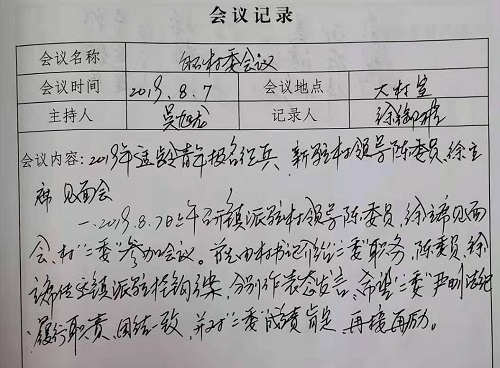 会议记录
会议名称 村委会议
会议时间 2019.8.7 会议地点 大村室
主持人 吴旭 记录人 徐
会议内容:2019年适龄青年报名征兵、新驻村领导陈委员、徐主
席见面会
一、2019.8.7日上午召开镇派驻村领导陈委员,徐主席见面
会,村"二委"参加会议。首先由村书记介绍"二委"职务,陈委员、徐
主席传达镇派驻村方案,分别作表态发言,希望"二委"严明法纪
履行职责,团结一致,并对"二委"成绩肯定,再接再励。